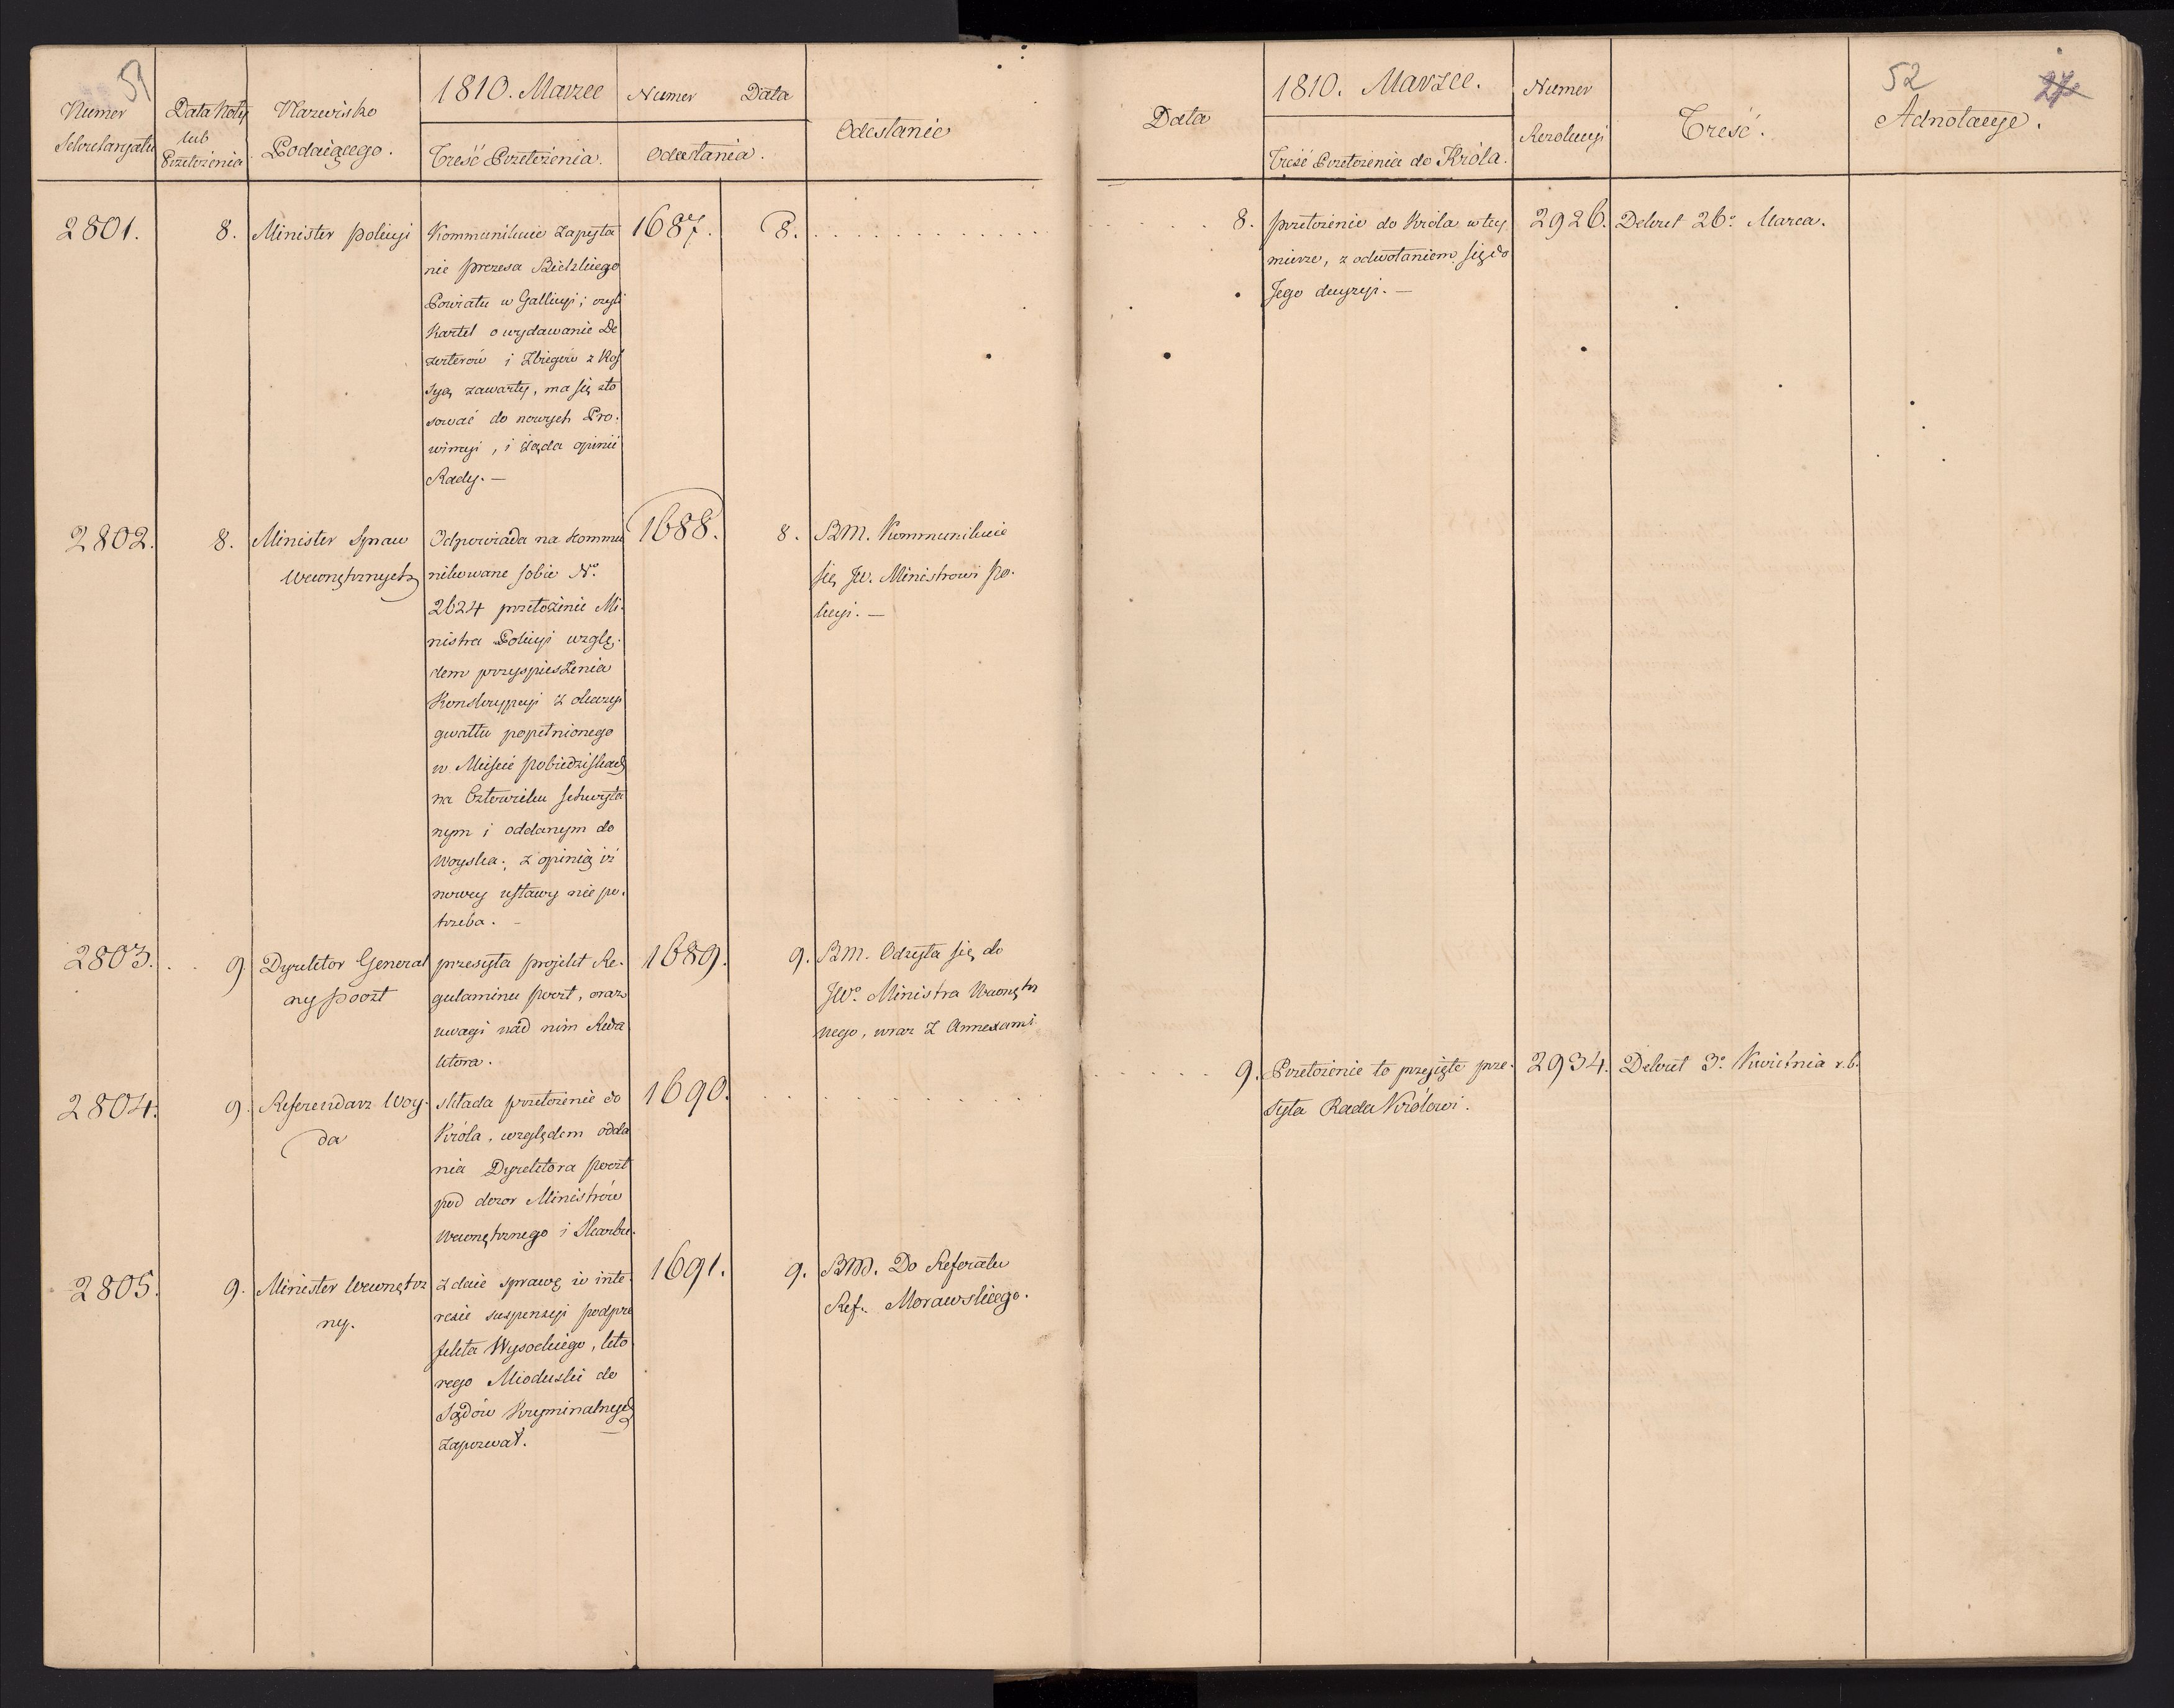 51
Numer
Sekretaryatu
Data Noty
lub
Przełożenia
Nazwisko
Podaiącego.
1810. Marzec
Treść Przełożenia.
Numer Data
Odesłania.
Odesłanie
2801. 8. Minister Policyi
Kommunikuie zapyta
nie Prezesa Bielskiego
Powiatu w Gallicyi; czyli
Kartel o wydawanie De
zerterów i Zbiegów z Ros
syą zawarty, ma się sto
sować do nowych Pro-
wincyi, i żąda opinii
Rady. —
1687. 8. . . . . . . . . . . .
2802. 8. Minister Spraw
Wewnętrznych
Odpowiada na kommu
nikowane sobie No.
2624 przełożenie Mi-
nistra Policyi wzglę-
dem przyspieszenia
Konskrypcyi z okazyi
gwałtu popełnionego
w Mieście Pobiedziskach
na Człowieku schwyta
nym i oddanym do
Woyska; z opinią iż
nowey ustawy nie po-
trzeba. —
1688. 8. BM. Kommunikuie
się JW. Ministrowi Po-
licyi. —
2803. . . 9 Dyrektor General
ny Poczt
przesyła projekt Re-
gulaminu Poczt, oraz
uwagi nad nim Reda
ktora.
1689. 9. BM. Odsyła się do
JWo. Ministra Wewnętrz
nego, wraz z Annexami
2804. 9. Referendarz Woy-
da
składa przełożenie do
Króla, względem odda
nia Dyrektora Poczt
pod dozor Ministrów
Wewnętrznego i Skarbu.
1690. . . . . . . . . .
2805. 9. Minister Wewnętrz
ny.
Zdaie sprawę w inte-
resie suspensyi podpre
fekta Wysockiego, któ
rego Mioduski do
Sądów Kryminalnych
zapozwał.
1691. 9. BM. Do Referatu
Ref. Morawskiego.
52
27
Data
1810. Marzec.
Treść Przełożenia do Króla.
Numer
Rezolucyi
Treść.
Adnotacye.
. . . . 8. Przełożenie do Króla w tey
mierze, z odwołaniem się do
Jego decyzyi. —
2926. Dekret 26o. Marca.
. . . . . 9. Przełożenie to przyjęte prze-
syła Rada Królowi.
2934. Dekret 3o. Kwietnia r.b.